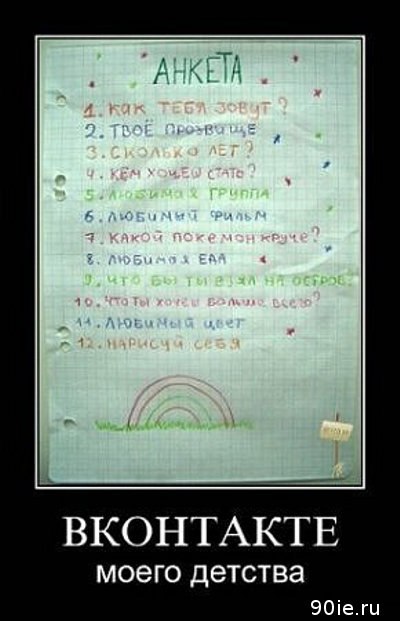 АНКЕТА
1. КАК ТЕБЯ ЗОВУТ?
2. ТВОЁ ПРОЗВИЩЕ
3. СКОЛЬКО ЛЕТ?
4. КЕМ ХОЧЕШ СТАТЬ?
5. ЛЮБИМАЯ ГРУППА
6. ЛЮБИМЫЙ ФИЛЬМ
7. КАКОЙ ПОКЕМОН КРУЧЕ?
8. ЛЮБИМАЯ ЕДА
9. ЧТО БЫ ТЫ ВЗЯЛ НА ОСТРОВ?
10. ЧТО ТЫ ХОЧЕШ БОЛЬШЕ ВСЕГО?
11. ЛЮБИМЫЙ ЦВЕТ
12. НАРИСУЙ СЕБЯ
ВКОНТАКТЕ
моего детства
90ie.ru